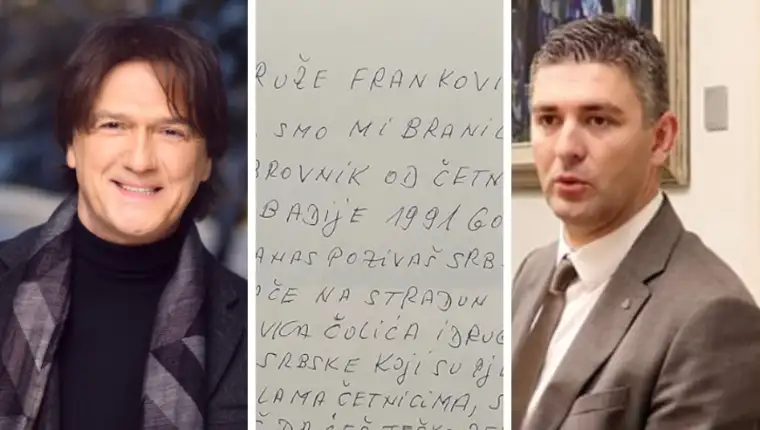 RUŽE FRANKOVI
SMO MI BRANIC
ROVNIK OD ČETN
BADIJE 1991 GO
ANAS POZIVAŠ SRB
AČE NA STRADUN
VICA ČOLIĆA I DRUG
SRBSKE KOJI SU PJ
LAMA ČETNICIMA, S
DA ĆEŠ TEŠKO